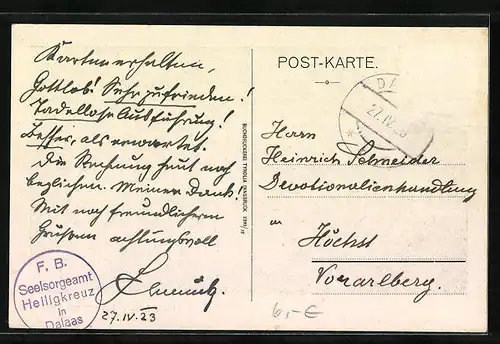 Karten erhalten,
Gottlob! Sehr zufrieden!
Tadellose Ausführung!
Besser, als erwartet.
Die Rechnung heut noch
beglichen. Meinen Dank!
Mit noch freundlichern
Grüßen achtungsvoll
27.IV.23
F. B.
Seelsorgeamt
Heiligkreuz
in
Dalaas
BUCHDRUCKEREI TYROLIA, INNSBRUCK
POST-KARTE.
DA
27.IV.23
Herrn
Heinrich Schneider
Devotionalienhandlung
in
Höchst
Vorarlberg.
6,-€